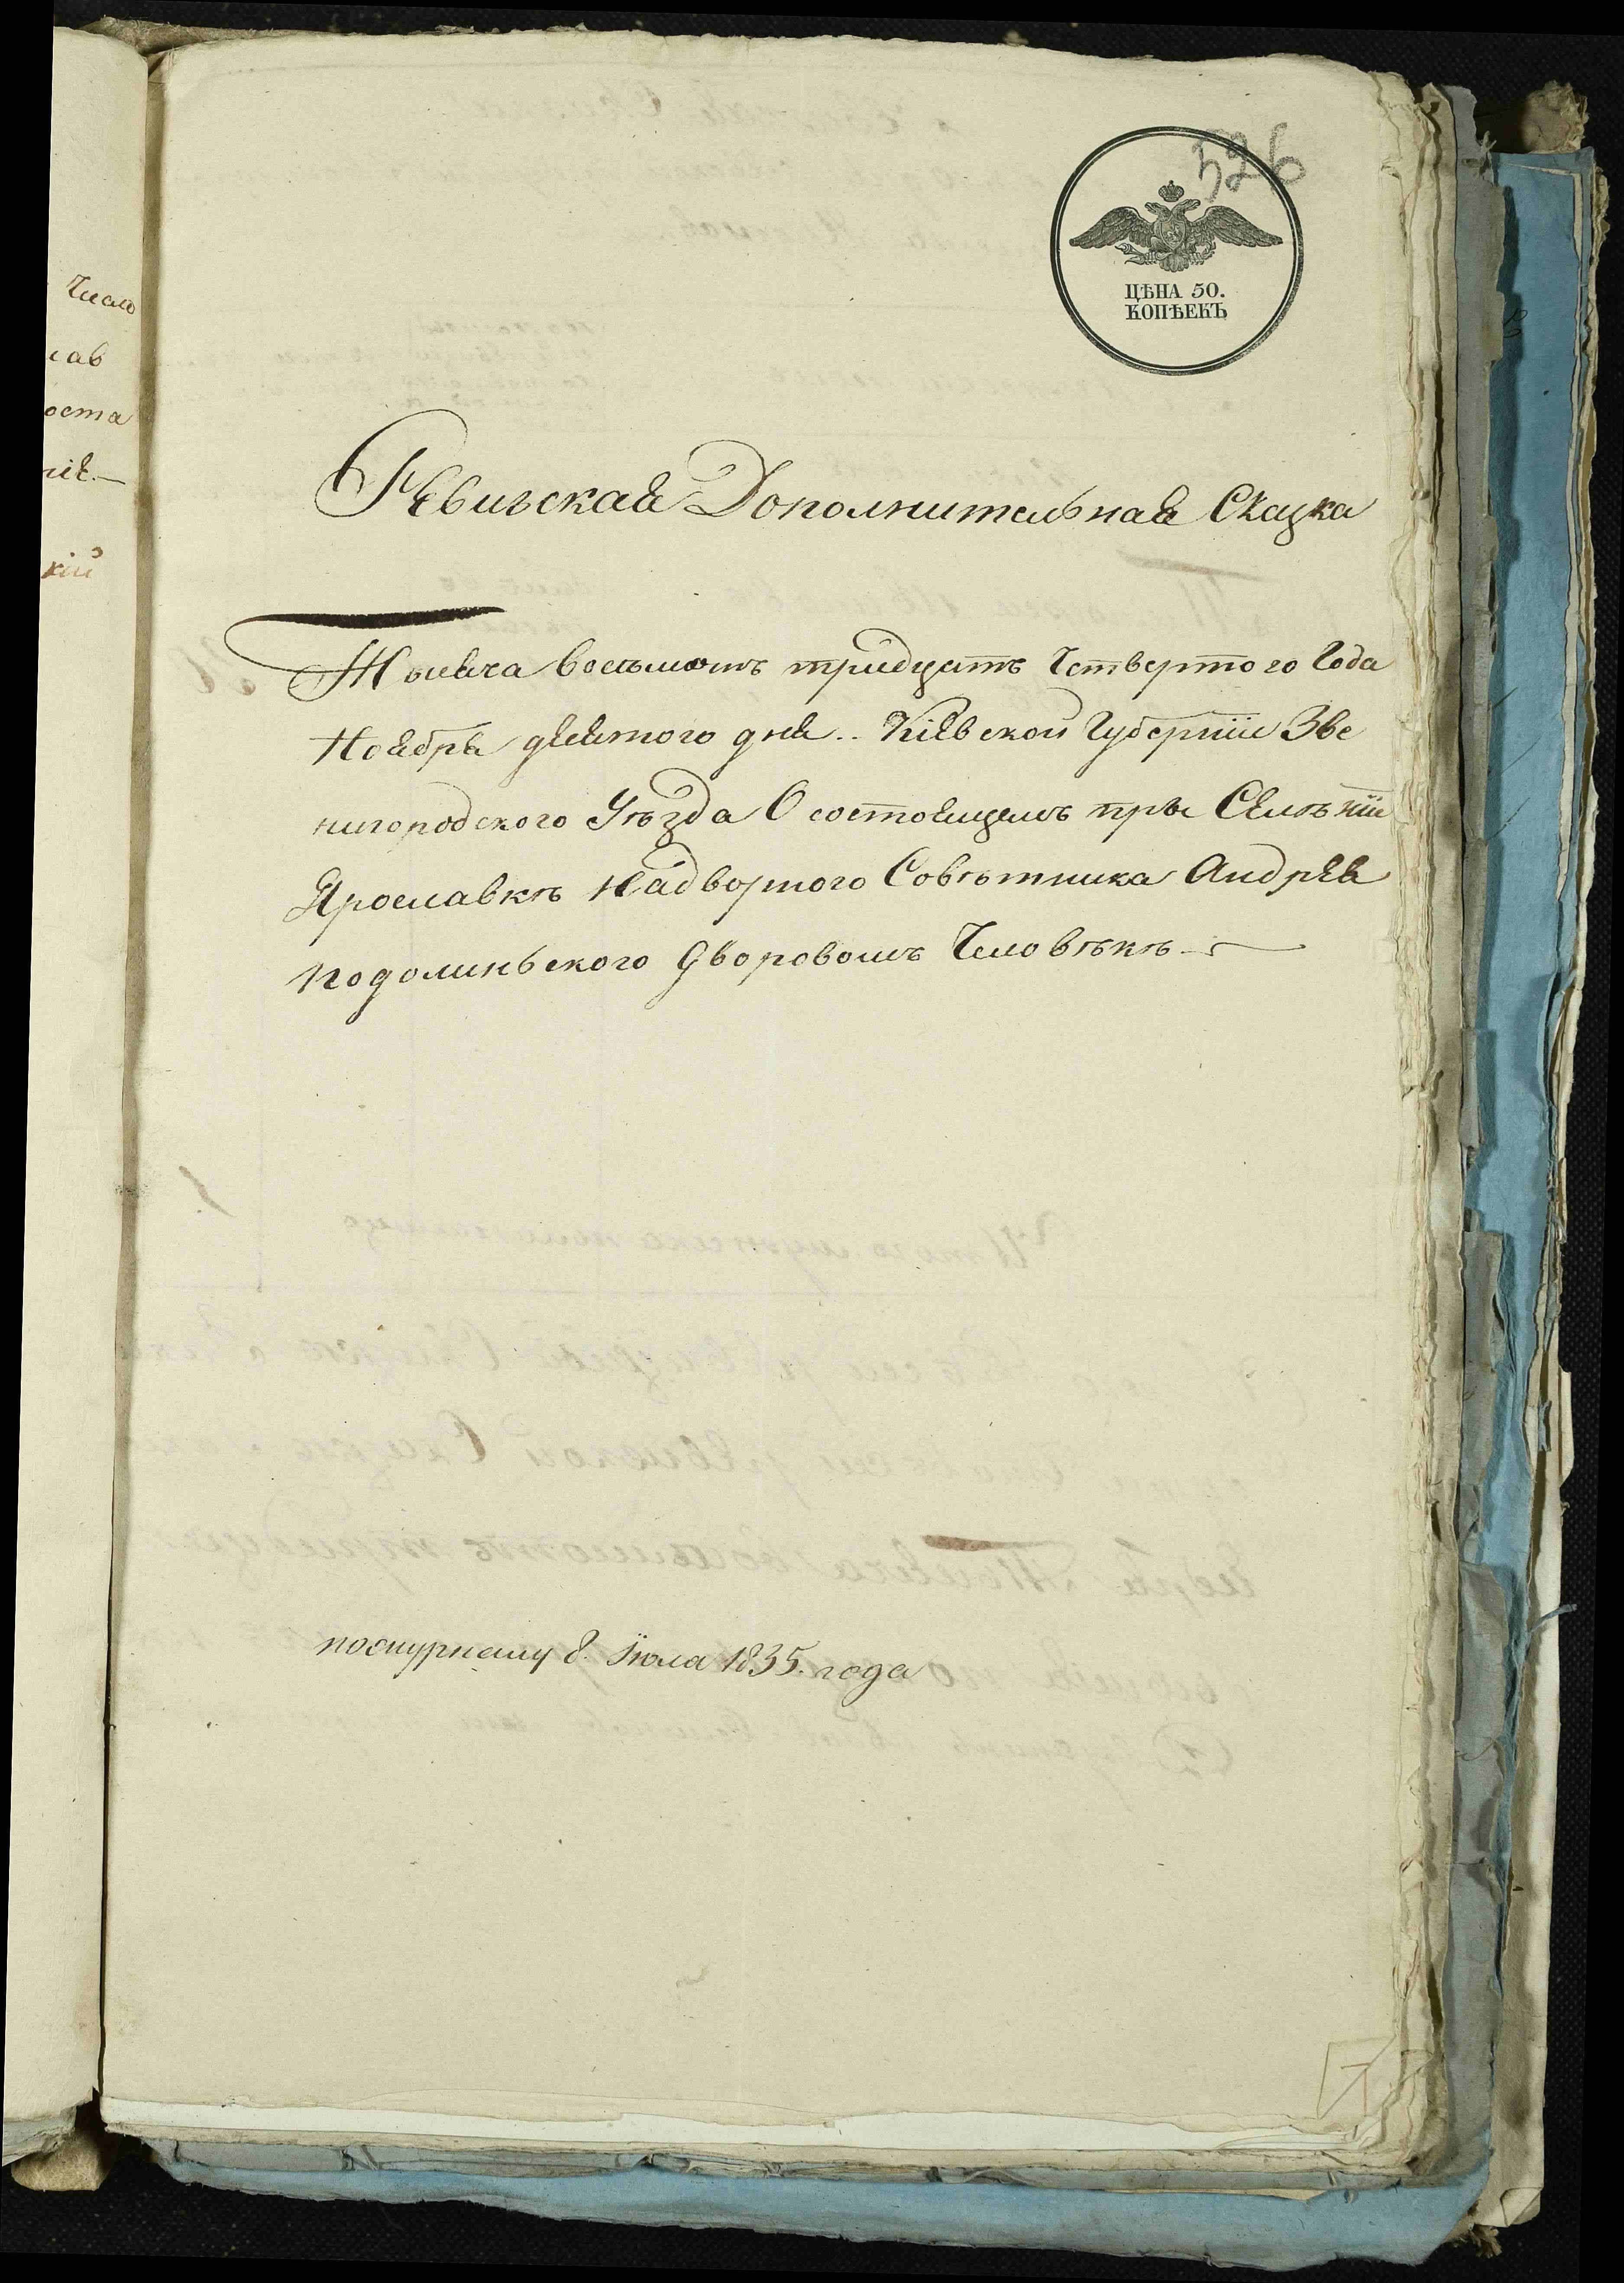 526
ЦѢНА 50.
КОПѢЕКЪ
Число
сав
оста
ніе.—
кій
Ревизская Дополнительная Сказка
Тысяча восемьсотъ тридцать Четвертого Года
Ноября девятого дня.. Кіевской Губерніи Зве
нигородского Уѣзда О состоящемъ при Селѣніи
Ярославкѣ Надворного Совѣтника Андрея
Подолиньского Дворовомъ Человѣкѣ —
8. Іюля 1835. года